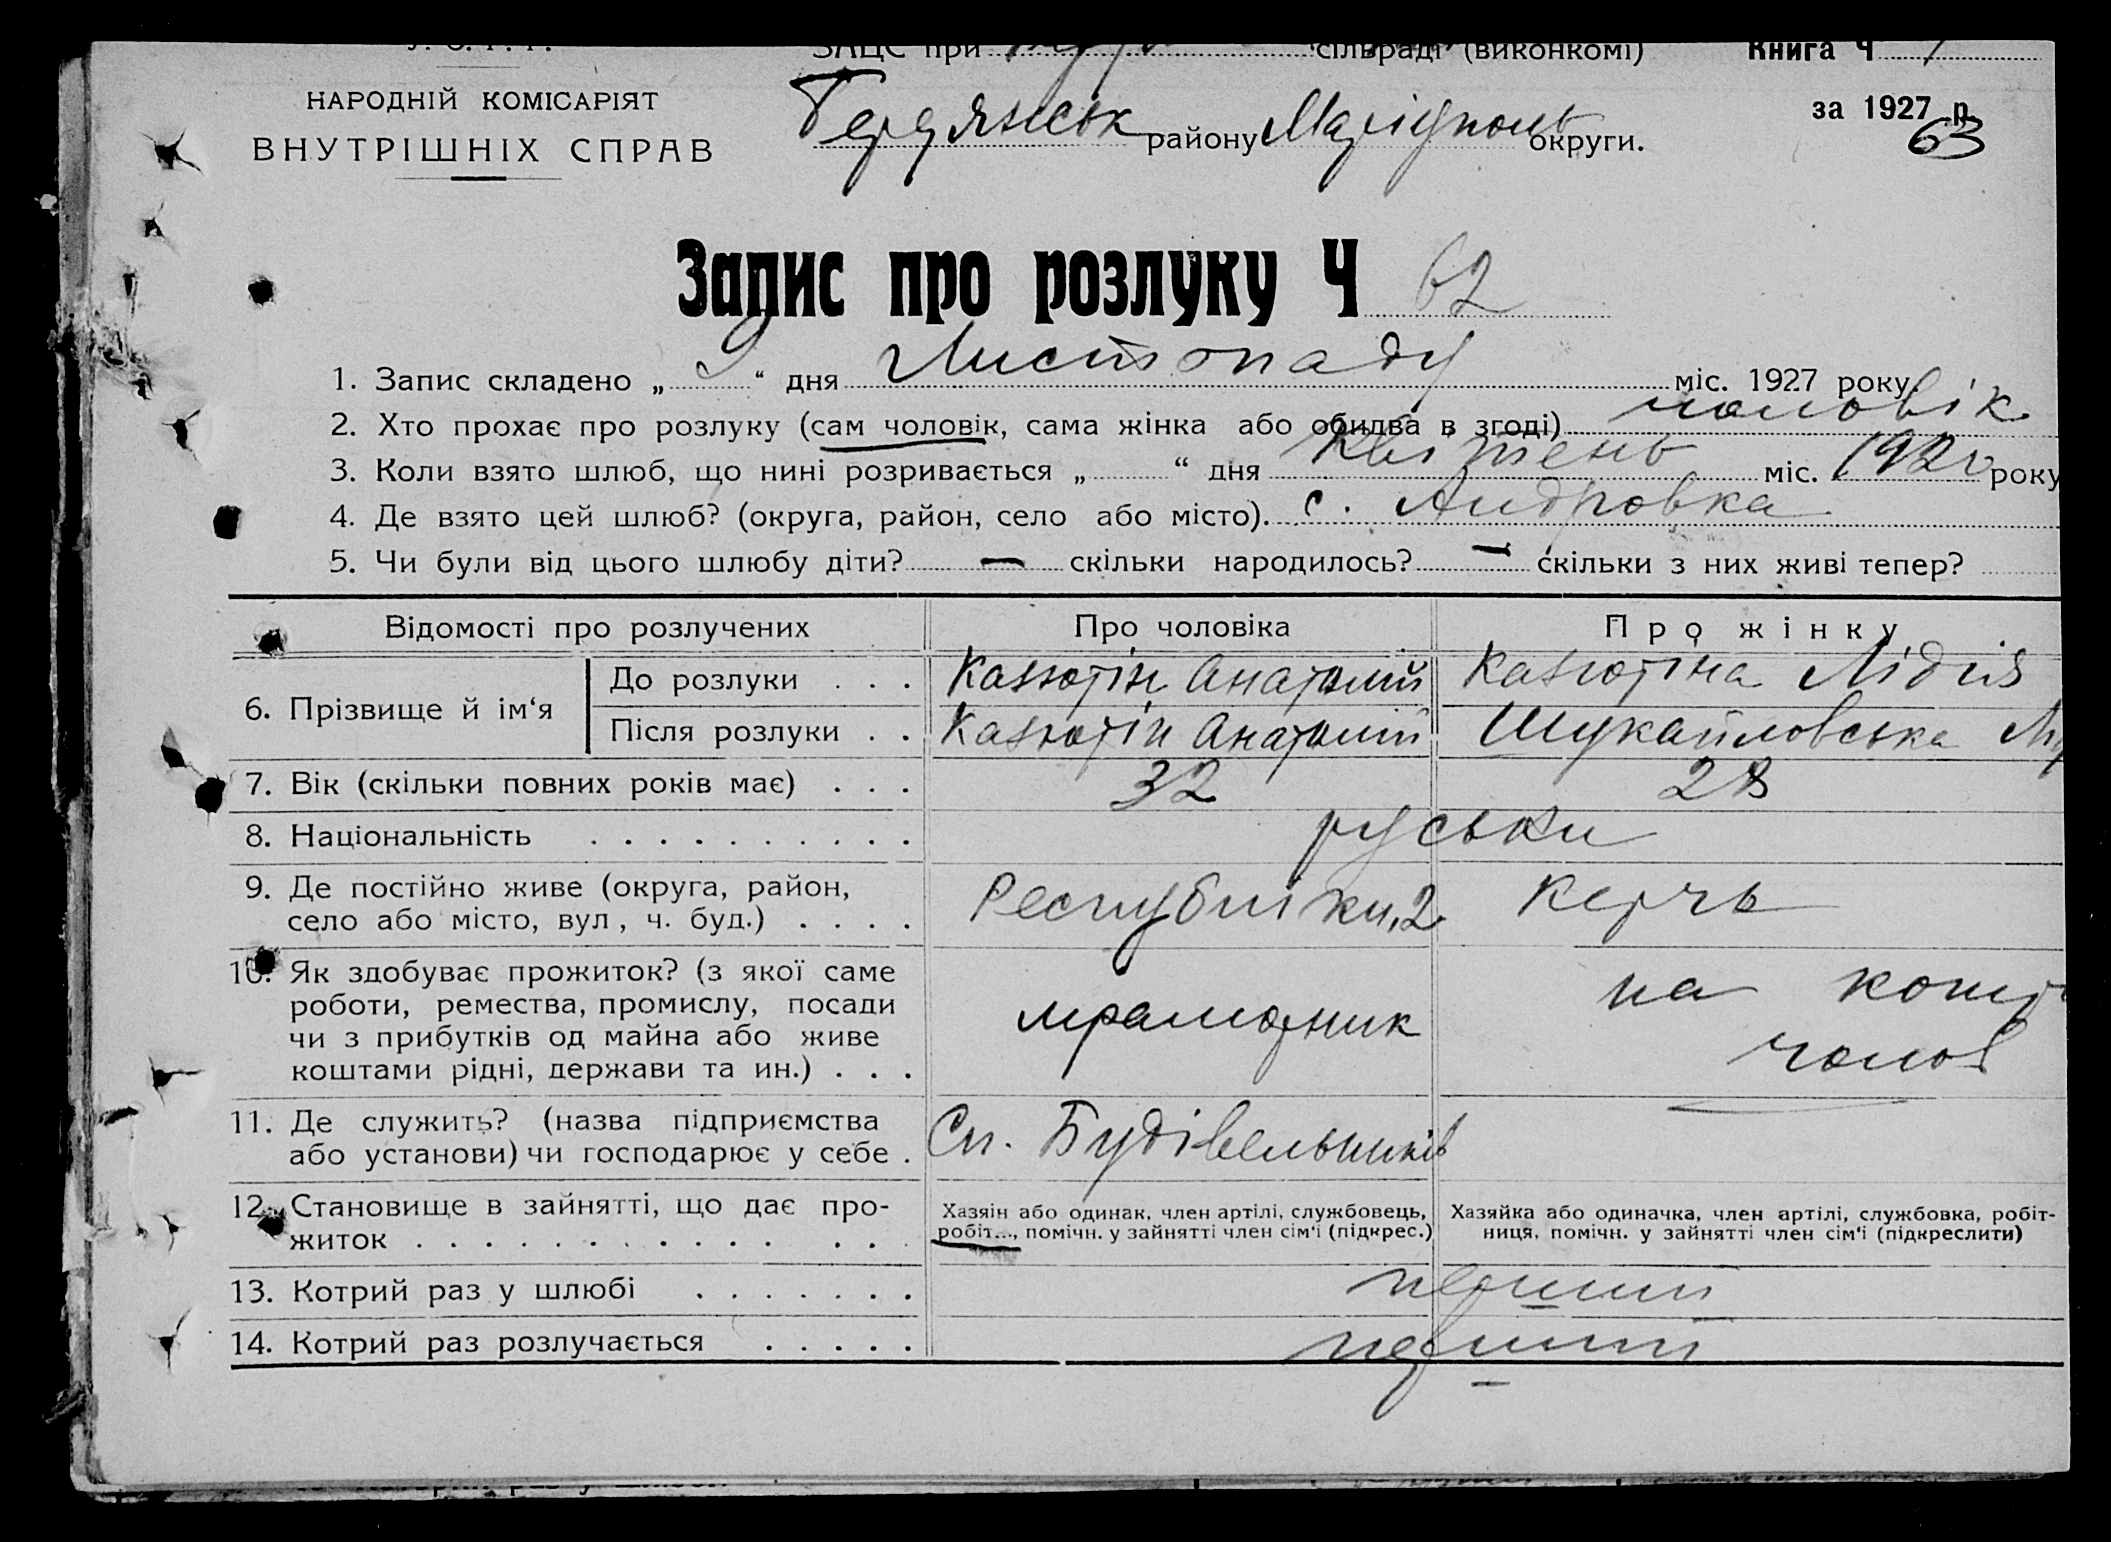 У. С. Р. Р.
ЗАЦС при сільраді (виконкомі) Книга Ч 1
НАРОДНІЙ КОМІСАРІЯТ
ВНУТРІШНІХ СПРАВ
Бердянськ району Маріуполь округи.
за 1927 р.
63
Запис про розлуку Ч 62
1. Запис складено „ 9 “ дня Листопаду міс. 1927 року.
2. Хто прохає про розлуку (сам чоловік, сама жінка або обидва в згоді) чоловік
3. Коли взято шлюб, що нині розривається „ “ дня Квітень міс. 1920 року
4. Де взято цей шлюб? (округа, район, село або місто). с. Андровка
5. Чи були від цього шлюбу діти? — скільки народилось? — скільки з них живі тепер?
Відомості про розлучених Про чоловіка Про жінку
6. Прізвище й ім‘я
До розлуки . . . Казютін Анатолій Казютіна Лідія
Після розлуки . . Казютін Анатолій Шукайловська
7. Вік (скільки повних років має) . . . 32 28
8. Національність . . . . . . . . . . руськи
9. Де постійно живе (округа, район,
село або місто, вул, ч. буд.) . . . . Республіки, 2 Керчь
10. Як здобуває прожиток? (з якої саме
роботи, ремества, промислу, посади
чи з прибутків од майна або живе
коштами рідні, держави та ин.) . . . мраморник на кошт
чолов
11. Де служить? (назва підприємства
або установи) чи господарює у себе . Сп. Будівельників
12. Становище в зайнятті, що дає про-
житок . . . . . . . . . . . . . .
Хазяін або одинак, член артілі, службовець,
робіт..., помічн. у зайнятті член сім‘і (підкрес.)
Хазяйка або одиначка, член артілі, службовка, робіт-
ниця, помічн. у зайнятті член сім‘і (підкреслити)
13. Котрий раз у шлюбі . . . . . . . перший
14. Котрий раз розлучається . . . . . перший